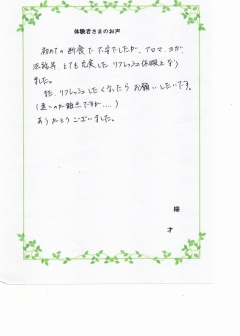 体験者さまのお声
初めての断食で不安でしたが、アロマ、ヨガ
とても充実したリフレッシュ休暇となり
ました。
また、リフレッシュしたくなったらお願いしたいです。
(遠いのが難点ですが....)
ありがとうございました。
様
才